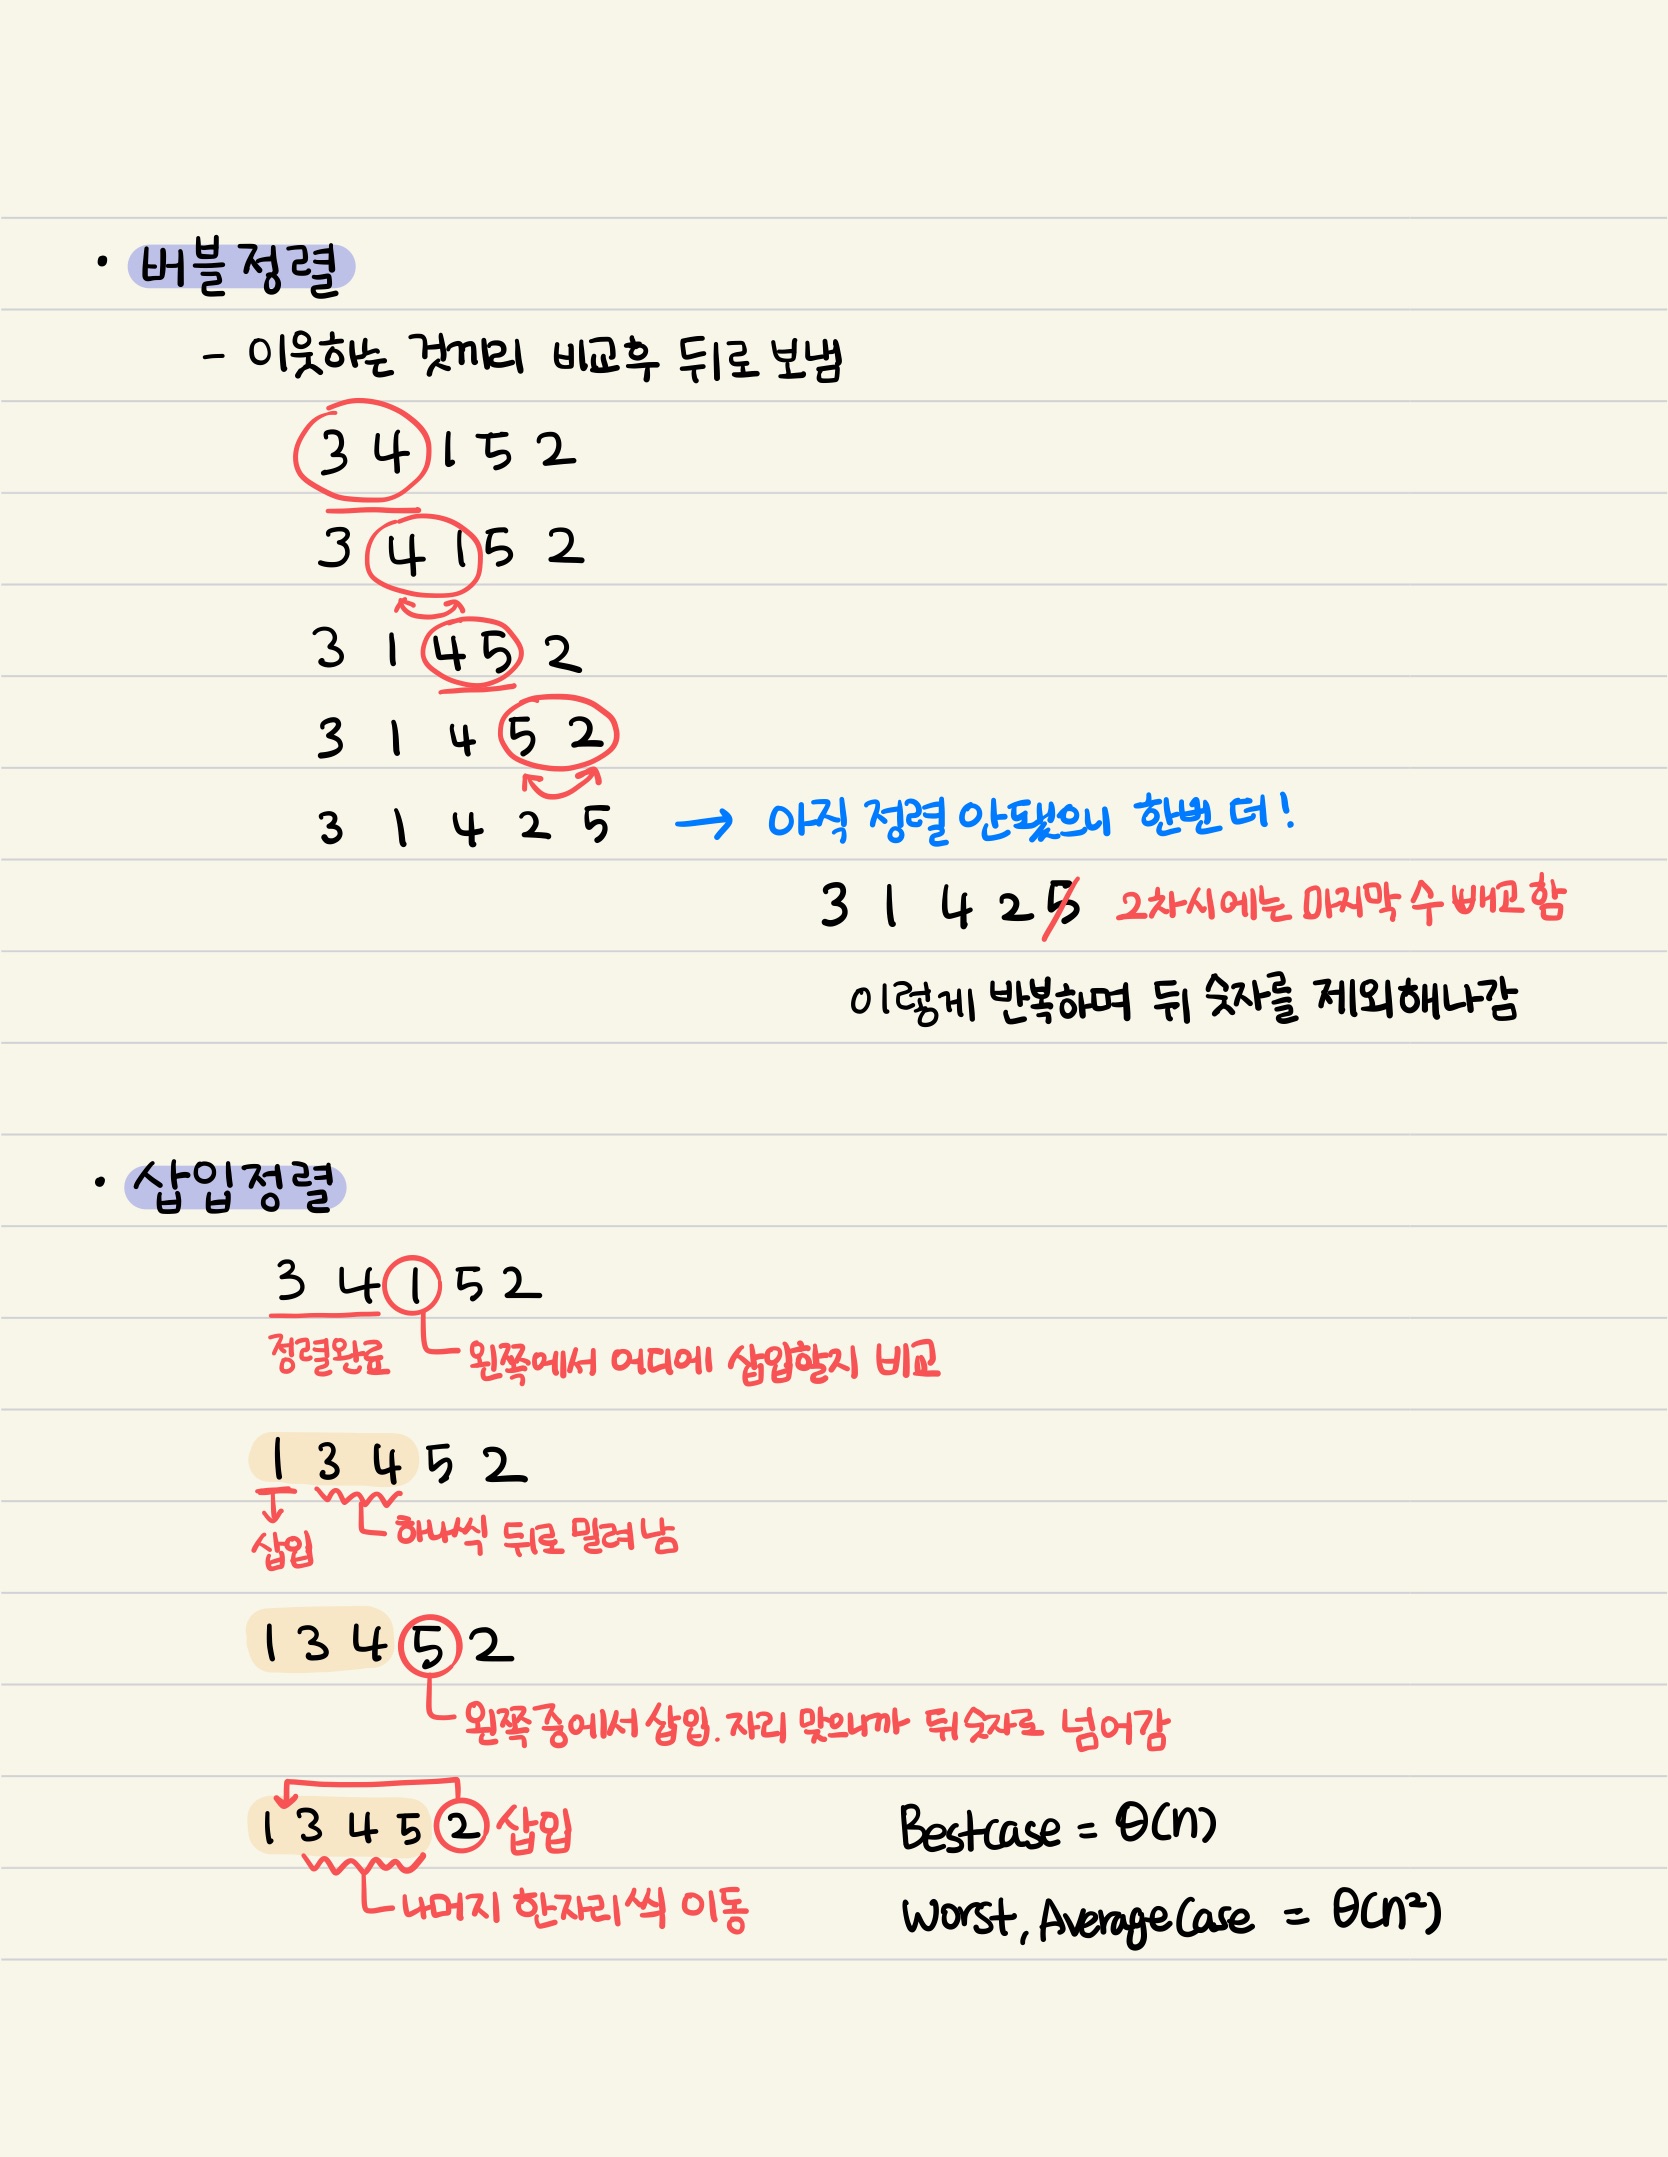 · 버블정렬
- 이웃하는 것끼리 비교후 뒤로 보냄
3 4 1 5 2
3 4 1 5 2
3 1 4 5 2
3 1 4 5 2
3 1 4 2 5 → 아직 정렬 안됐으니 한번 더!
3 1 4 2 5 2차시에는 마지막 수 빼고 함
이렇게 반복하며 뒤 숫자를 제외해나감
· 삽입정렬
3 4 1 5 2
정렬완료 왼쪽에서 어디에 삽입할지 비교
1 3 4 5 2
삽입 하나씩 뒤로 밀려남
1 3 4 5 2
왼쪽 중에서 삽입. 자리 맞으니까 뒤 숫자로 넘어감
1 3 4 5 2 삽입
나머지 한자리씩 이동
Bestcase = θ(n)
Worst, Average Case = θ(n²)